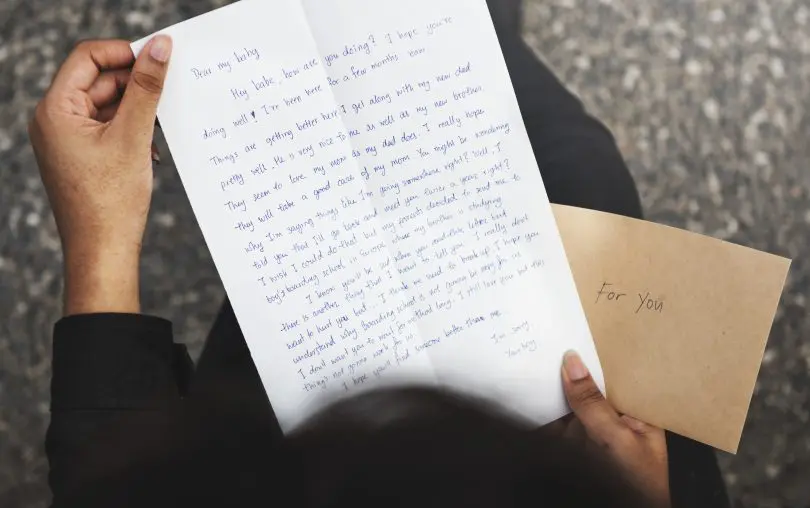 Dear my baby
Hey babe, how are you doing? I hope you're
doing well! I've been here for a few months now
Things are getting better here I get along with my new dad
pretty well. He is very nice to me as well as my new brother.
They seem to love my mom as my dad does. I really hope
they will take a good care of my mom. You might be wondering
why I'm saying things like I'm going somewhere right? Well, I
told you that I'll go back and meet you twice a year, right?
I wish I could do that but my parents decided to send me to
boy's boarding school in Europe where my brother is studying
I know you'll be sad when you read this letter but
there is another thing that I want to tell you. I really don't
want to hurt you but I think we need to break up. I hope you
understand why. Boarding school is not gonna be easy for us
I don't want you to wait for that long. I still love you but this
thing's not gonna work for us
I hope you'll find someone better than me
I'm sorry
Your boy
For You